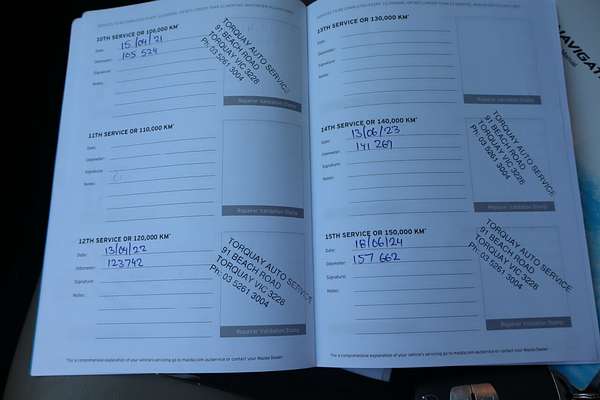 10TH SERVICE OR 100,000 KM*
Date: 15/04/21
Odometer: 105 524
Signature:
Notes:
TORQUAY AUTO SERVICE
91 BEACH ROAD
TORQUAY VIC 3228
Ph: 03 5261 3004
Repairer Validation Stamp
11TH SERVICE OR 110,000 KM*
Date:
Odometer:
Signature:
Notes:
Repairer Validation Stamp
12TH SERVICE OR 120,000 KM*
Date: 13/04/22
Odometer: 123742
Signature:
Notes:
TORQUAY AUTO SERVICE
91 BEACH ROAD
TORQUAY VIC 3228
Ph: 03 5261 3004
Repairer Validation Stamp
13TH SERVICE OR 130,000 KM*
Date:
Odometer:
Signature:
Notes:
Repairer Validation Stamp
14TH SERVICE OR 140,000 KM*
Date: 13/06/23
Odometer: 141 269
Signature:
Notes:
TORQUAY AUTO SERVICE
91 BEACH ROAD
TORQUAY VIC 3228
Ph: 03 5261 3004
Repairer Validation Stamp
15TH SERVICE OR 150,000 KM*
Date: 18/06/24
Odometer: 157 662
Signature:
Notes:
TORQUAY AUTO SERVICE
91 BEACH ROAD
TORQUAY VIC 3228
Ph: 03 5261 3004
Repairer Validation Stamp
*For a comprehensive explanation of your vehicle's servicing go to mazda.com.au/service or contact your Mazda Dealer.
NAVIGAT